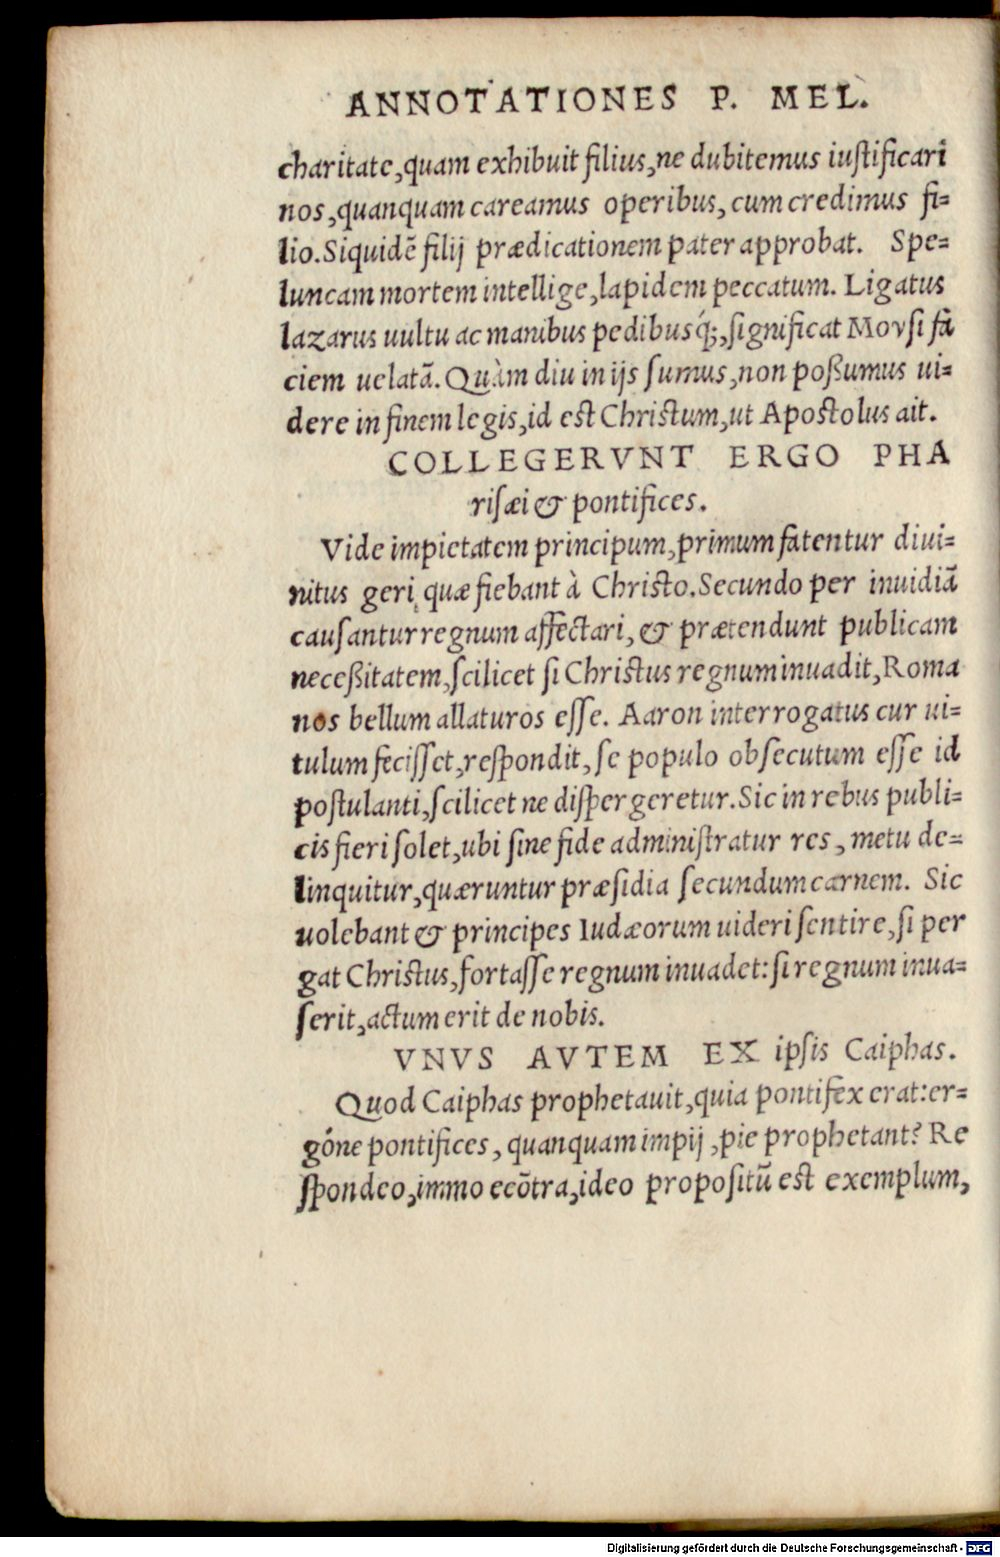 ANNOTATIONES P. MEL.
charitate, quam exhibuit filius, ne dubitemus iustificari
nos, quanquam careamus operibus, cum credimus fi=
lio. Siquidē filij prædicationem pater approbat. Spe=
luncam mortem intellige, lapidem peccatum. Ligatus
lazarus uultu ac manibus pedibusq́;, significat Moysi fa
ciem uelatā. Quàm diu in ijs sumus, non poßumus ui=
dere in finem legis, id est Christum, ut Apostolus ait.
COLLEGERVNT ERGO PHA
risæi & pontifices.
Vide impietatem principum, primum fatentur diui=
nitus geri, quæ fiebant à Christo. Secundo per inuidiā
causantur regnum affectari, & prætendunt publicam
neceßitatem, scilicet si Christus regnum inuadit, Roma
nos bellum allaturos esse. Aaron interrogatus cur ui=
tulum fecisset, respondit, se populo obsecutum esse id
postulanti, scilicet ne dispergeretur. Sic in rebus publi=
cis fieri solet, ubi sine fide administratur res, metu de=
linquitur, quæruntur præsidia secundum carnem. Sic
uolebant & principes Iudæorum uideri sentire, si per
gat Christus, fortasse regnum inuadet: si regnum inua=
serit, actum erit de nobis.
VNVS AVTEM EX ipsis Caiphas.
Quod Caiphas prophetauit, quia pontifex erat: er=
góne pontifices, quanquam impij, pie prophetant? Re
spondeo, immo ecōtra, ideo propositū est exemplum,
Digitalisierung gefördert durch die Deutsche Forschungsgemeinschaft - DFG